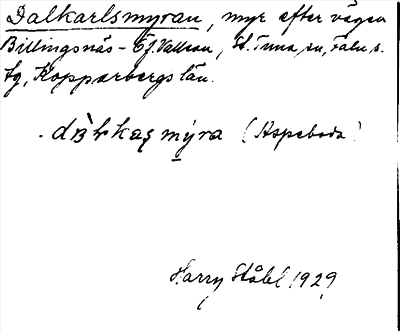 Dalkarlsmyran, myr efter vägen
Billingsnäs - Ö. Vallsån, St. Tuna sn, Falu s.
fg, Kopparbergs län.
(Aspeboda)
Harry Ståhl 1929